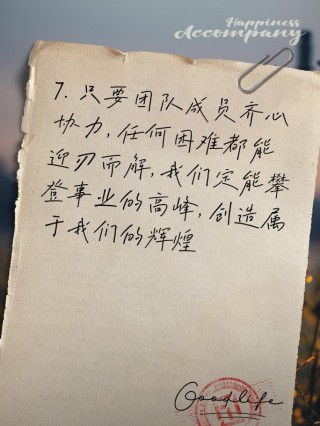 Happiness
Accompany
7. 只要团队成员齐心
协力，任何困难都能
迎刃而解，我们定能攀
登事业的高峰，创造属
于我们的辉煌
Goodlife